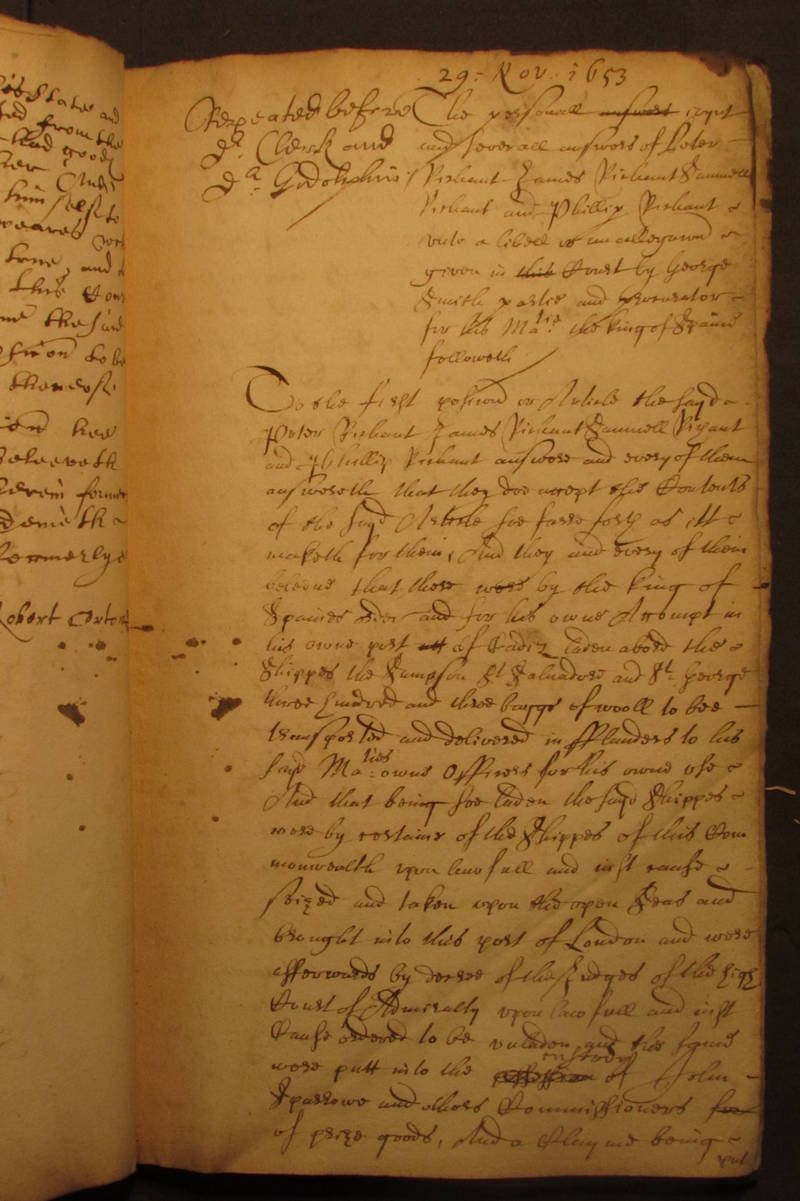 29: Nov. 1653
Repeated before
dr. Clerk and
dr. Godolphin
The personall answers ioynt
and severall answers of Peter
Richaut James Richaut Samuell
Richaut and Phillip Richaut
unto a libell or an allegation
given in this Court by George
Smith partie and procurator
for his Maties. the king of Spaine
followeth
To the first position or Article the sayd
Peter Richaut James Richaut Samuell Richaut
and Phillip Richaut answere and every of them
answereth that they doe accept the Contents
of the sayd Article soe farre forth as itt
maketh for them, And they and every of them
beleeve that there were by the king of
Spaines order and for his owne Accompt in
his owne port att of Cadiz laden abord the
Shippes the Sampson St Salvadore and St. George
three hundred and three baggs of wooll to bee
transported and delivered in fflanders to his
sayd Maties. owne Officers for his owne use
And that being soe laden the sayd Shippes
were by certaine of the Shippes of this Com
monwealth upon lawfull and iust cause
seized and taken upon the open Seas and
brought into this port of London and were
afterwards by decree of the Judges of the high
Court of Admiralty upon lawfull and iust
Cause ordered to be unladen and the same
were putt into the possession custody of John
Sparrowe and others Commissioners for
of prize goods, And a Clayme being
put
this Cour
to be
hee
beleeveth
former
denieth
formerlye
Robert